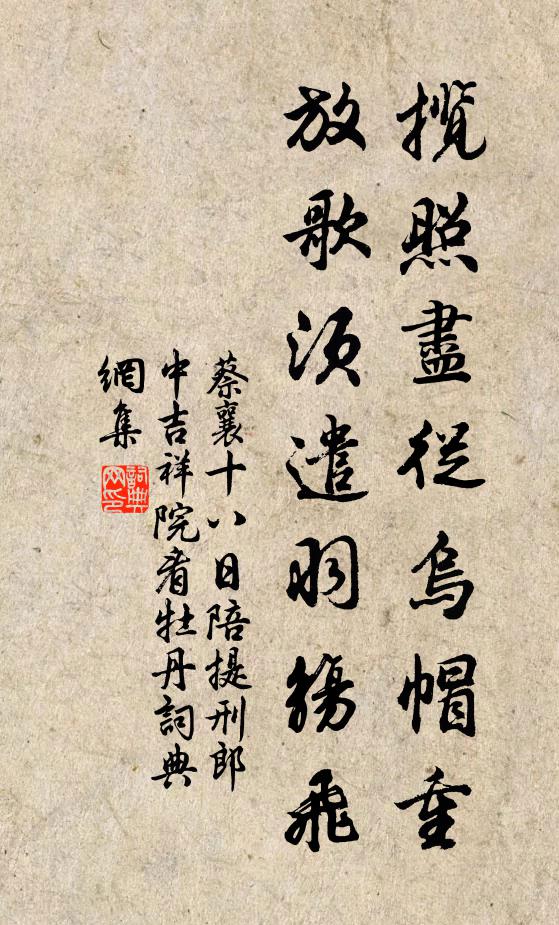 攬照盡從烏帽重
放歌須遣羽觴飛
蔡襄十八日陪提刑郎
中吉祥院看牡丹詞典
網集
詞典網印